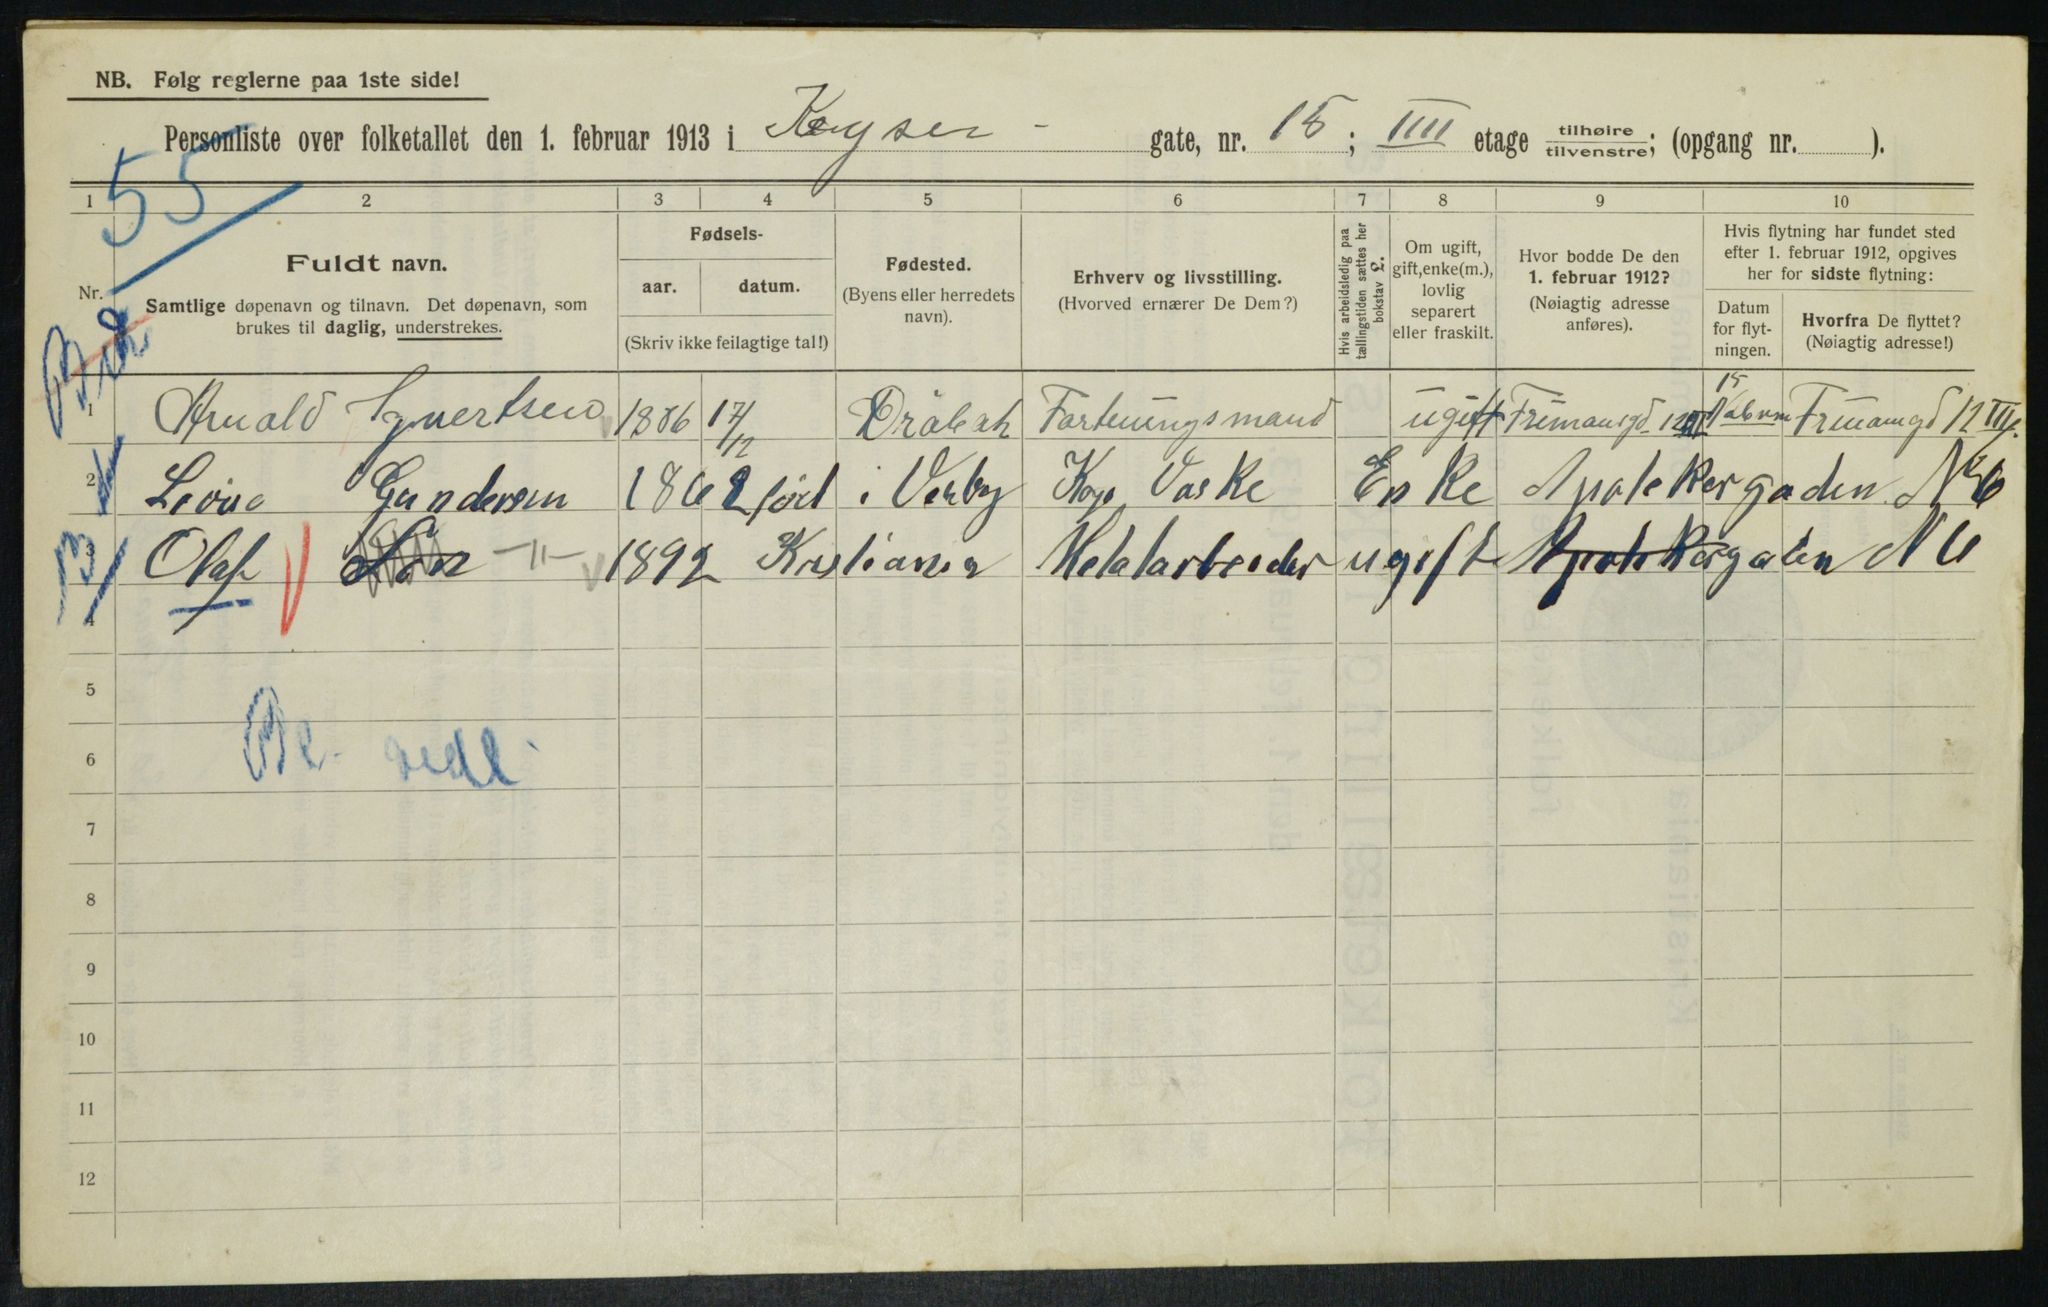 NB. Følg reglerne paa 1ste side!
Personliste over folketallet den 1. februar 1913 i Keyser - gate, nr. 15; IIII etage tilhøire / tilvenstre; (opgang nr. ).
55
1 2 3 4 5 6 7 8 9 10
Nr.
Fuldt navn.
Samtlige døpenavn og tilnavn. Det døpenavn, som
brukes til daglig, understrekes.
Fødsels-
aar. datum.
(Skriv ikke feilagtige tal!)
Fødested.
(Byens eller herredets
navn).
Erhverv og livsstilling.
(Hvorved ernærer De Dem?)
Hvis arbeidsledig paa
tællingstiden sættes her
bokstav L.
Om ugift,
gift, enke(m.),
lovlig
separert
eller fraskilt.
Hvor bodde De den
1. februar 1912?
(Nøiagtig adresse
anføres).
Hvis flytning har fundet sted
efter 1. februar 1912, opgives
her for sidste flytning:
Datum
for flyt-
ningen.
Hvorfra De flyttet?
(Nøiagtig adresse!)
1 Arnald 1886 17/12 Dröbak ugift 15
2 Gundersen 1862 född i Koge Vaske Enke Apotekergaden No 6
3 Olaf Sön -"- 1892 Kristiania Metalarbeider ugift Apotekergaden N 6
4
5
6
7
8
9
10
11
12